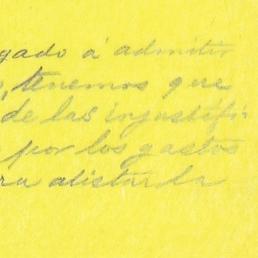 gado á admitir
, tenemos que
de las injustifi-
por los gastos
ra alistar la